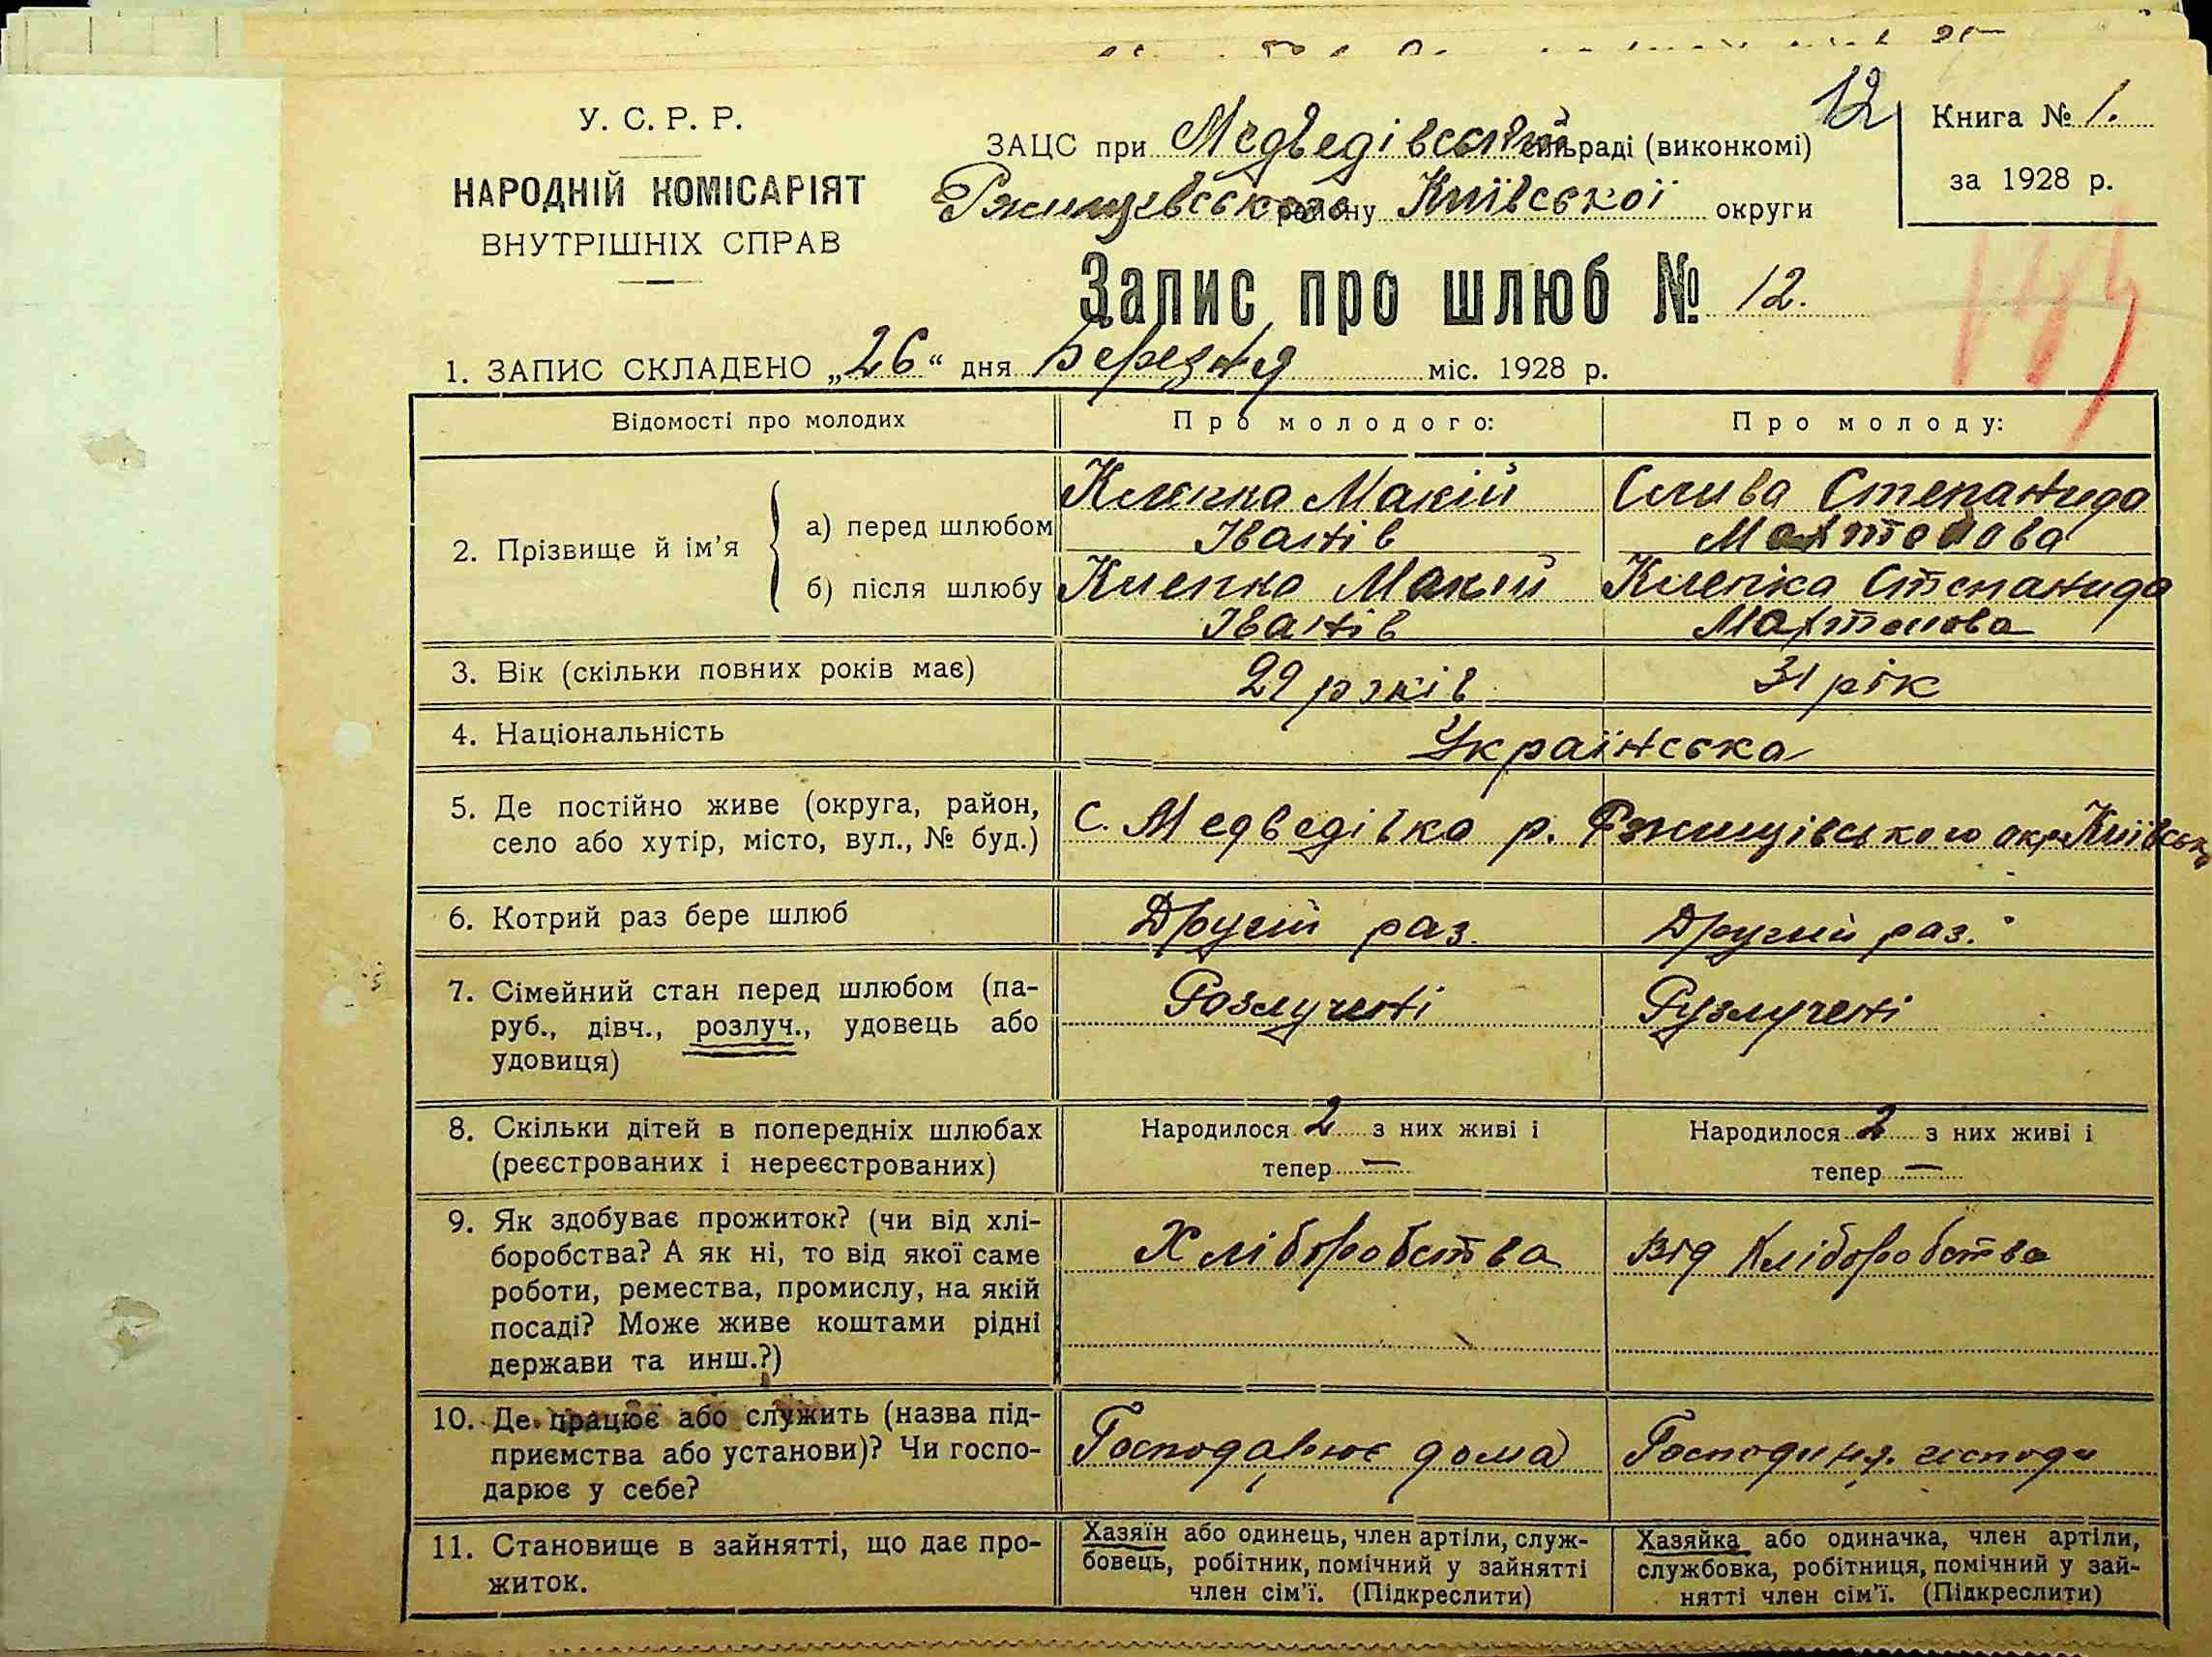 12
У. С. Р. Р.
НАРОДНІЙ КОМІСАРІЯТ
ВНУТРІШНІХ СПРАВ
ЗАЦС при Медведівській сільраді (виконкомі)
Ржищівського району Київської округи
Книга № 1.
за 1928 р.
Запис про шлюб № 12.
1. ЗАПИС СКЛАДЕНО „26“ дня Березня міс. 1928 р.
Відомості про молодих
Про молодого:
Про молоду:
2. Прізвище й ім'я
а) перед шлюбом
Клепка Мокій
Іванів
Слива Степанида
Мартонова
б) після шлюбу
Клепка Мокій
Іванів
Клепка Степанида
Мартонова
3. Вік (скільки повних років має)
29 років
31 рік
4. Національність
Українська
5. Де постійно живе (округа, район,
село або хутір, місто, вул., № буд.)
С. Медведівка р. Ржищівського окр. Київськ
6. Котрий раз бере шлюб
Другий раз.
Другий раз.
7. Сімейний стан перед шлюбом (па-
руб., дівч., розлуч., удовець або
удовиця)
Розлучені
Рузлучені
8. Скільки дітей в попередніх шлюбах
(реєстрованих і нереєстрованих)
Народилося 2 з них живі і
тепер —
Народилося 2 з них живі і
тепер —
9. Як здобуває прожиток? (чи від хлі-
боробства? А як ні, то від якої саме
роботи, ремества, промислу, на якій
посаді? Може живе коштами рідні
держави та инш.?)
Хліборобства
Від Хліборобства
10. Де працює або служить (назва під-
приємства або установи)? Чи госпо-
дарює у себе?
Господарює дома
Господиня господи
11. Становище в зайнятті, що дає про-
житок.
Хазяїн або одинець, член артіли, служ-
бовець, робітник, помічний у зайнятті
член сім'ї. (Підкреслити)
Хазяйка або одиначка, член артіли,
службовка, робітниця, помічний у зай-
нятті член сім'ї. (Підкреслити)